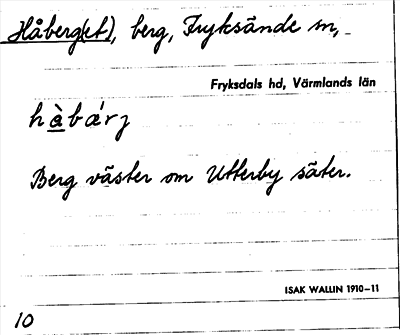 Håberg(et), berg, Fryksände sn,
Fryksdals hd, Värmlands län
hàbǽrj
Berg väster om Utterby säter.
ISAK WALLIN 1910–11
10